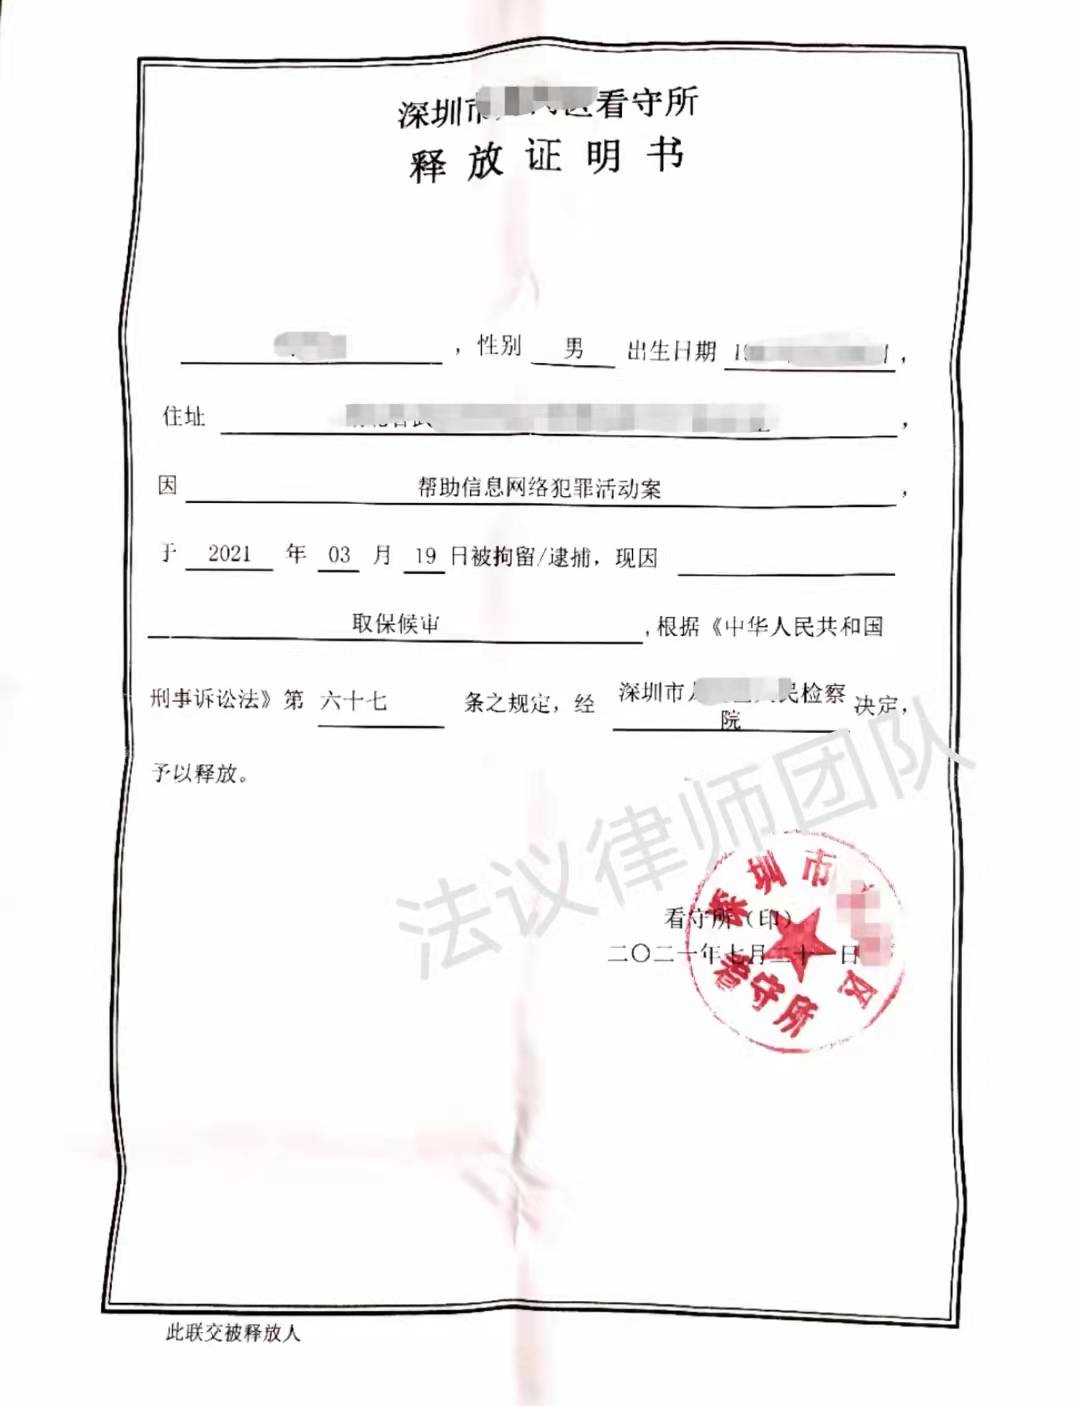 深圳市 区看守所
释放证明书
，性别 男 出生日期 19 1，
住址 ，
因 帮助信息网络犯罪活动案 ，
于 2021 年 03 月 19 日被拘留/逮捕，现因
取保候审 ，根据《中华人民共和国
刑事诉讼法》第 六十七 条之规定，经 深圳市 民检察院 决定，
予以释放。
法议律师团队
深圳市 区看守所
看守所（印）
二〇二一年七月二十 日
此联交被释放人